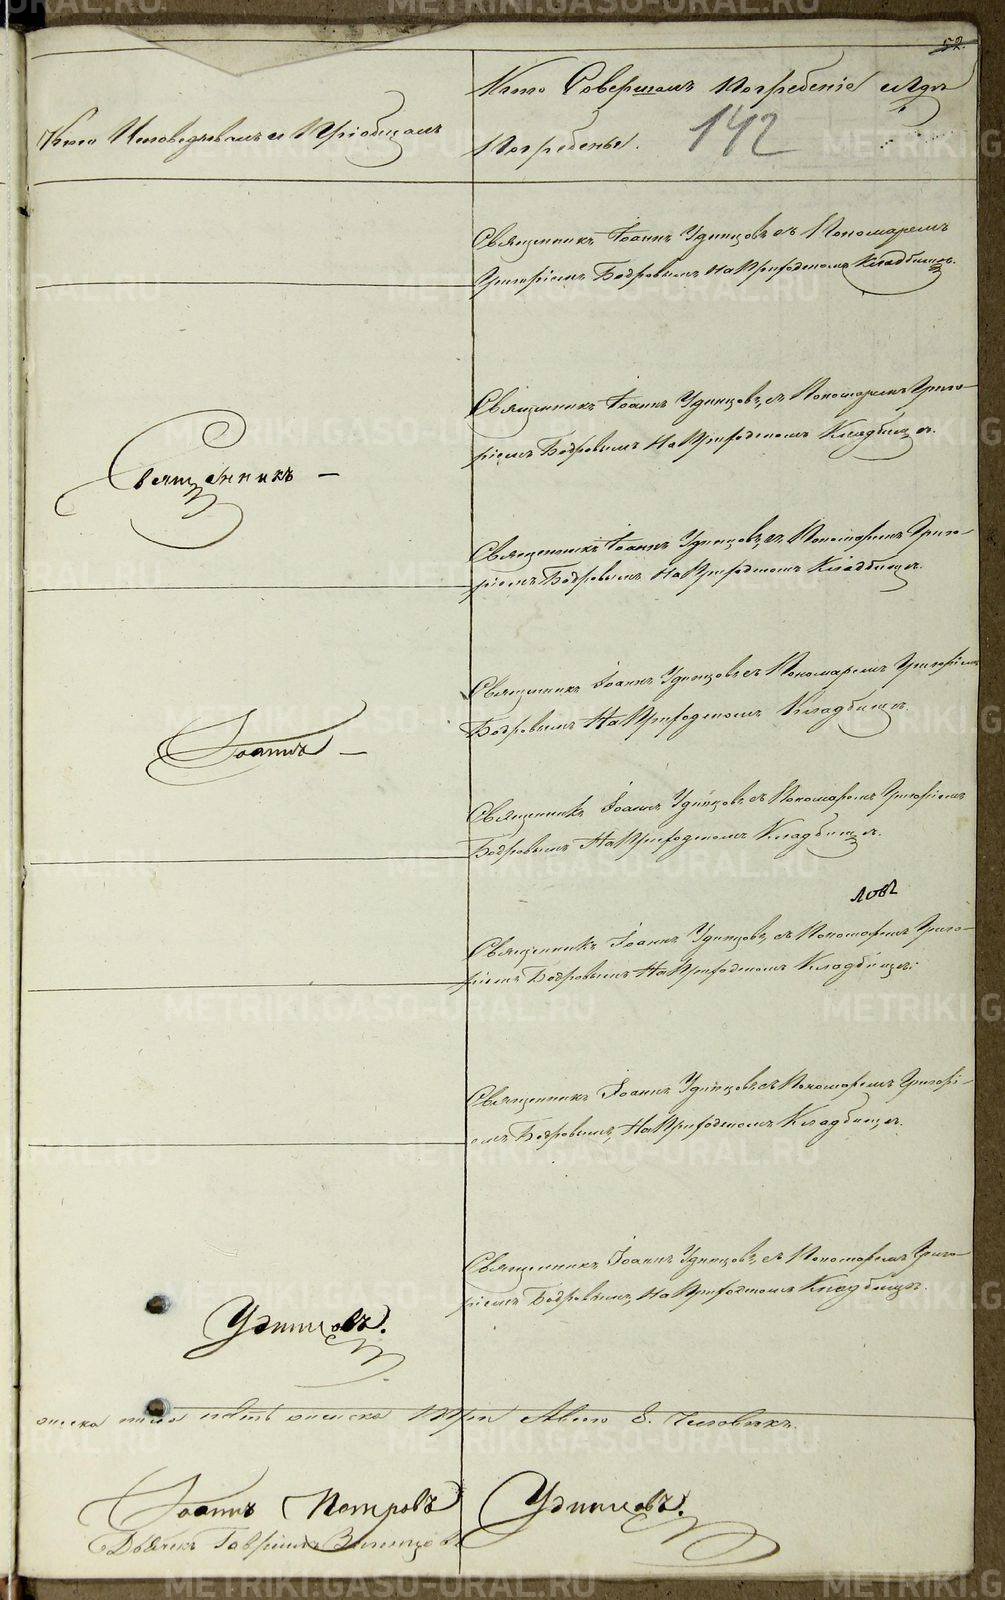 52.
Кто Исповедывалъ и Пріобщалъ
Кто Совершалъ Погребеніе и Гдѣ
Погребены.
142
Священникъ Іоаннъ Удинцовъ съ Пономаремъ
Григоріемъ Бодровымъ На Приходскомъ Кладбищѣ.
Священникъ Іоаннъ Удинцовъ, съ Пономаремъ Григо-
ріемъ Бодровымъ На Приходскомъ Кладбищѣ.
Священникъ —
Священникъ Іоаннъ Удинцовъ, съ Пономаремъ Григо-
ріемъ Бодровымъ На Приходскомъ Кладбищѣ.
Священникъ Іоаннъ Удинцовъ съ Пономаремъ Григоріемъ
Бодровымъ На Приходскомъ Кладбищѣ.
Іоаннъ —
Священникъ Іоаннъ Удинцовъ съ Пономаремъ Григоріемъ
Бодровымъ На Приходскомъ Кладбищѣ.
Священникъ Іоаннъ Удинцовъ, съ Пономаремъ Григо-
ріемъ Бодровымъ На Приходскомъ Кладбищѣ.
Священникъ Іоаннъ Удинцовъ съ Пономаремъ Григорі-
емъ Бодровымъ, На Приходскомъ Кладбищѣ.
Священникъ Іоаннъ Удинцовъ, съ Пономаремъ Григо-
ріемъ Бодровымъ, На Приходскомъ Кладбищѣ.
Удинцовъ.
пять женска Три Всего 8. Человѣкъ.
Іоаннъ Петровъ Удинцовъ.
Дьячекъ Гавріилъ
METRIKI.GASO-URAL.RU